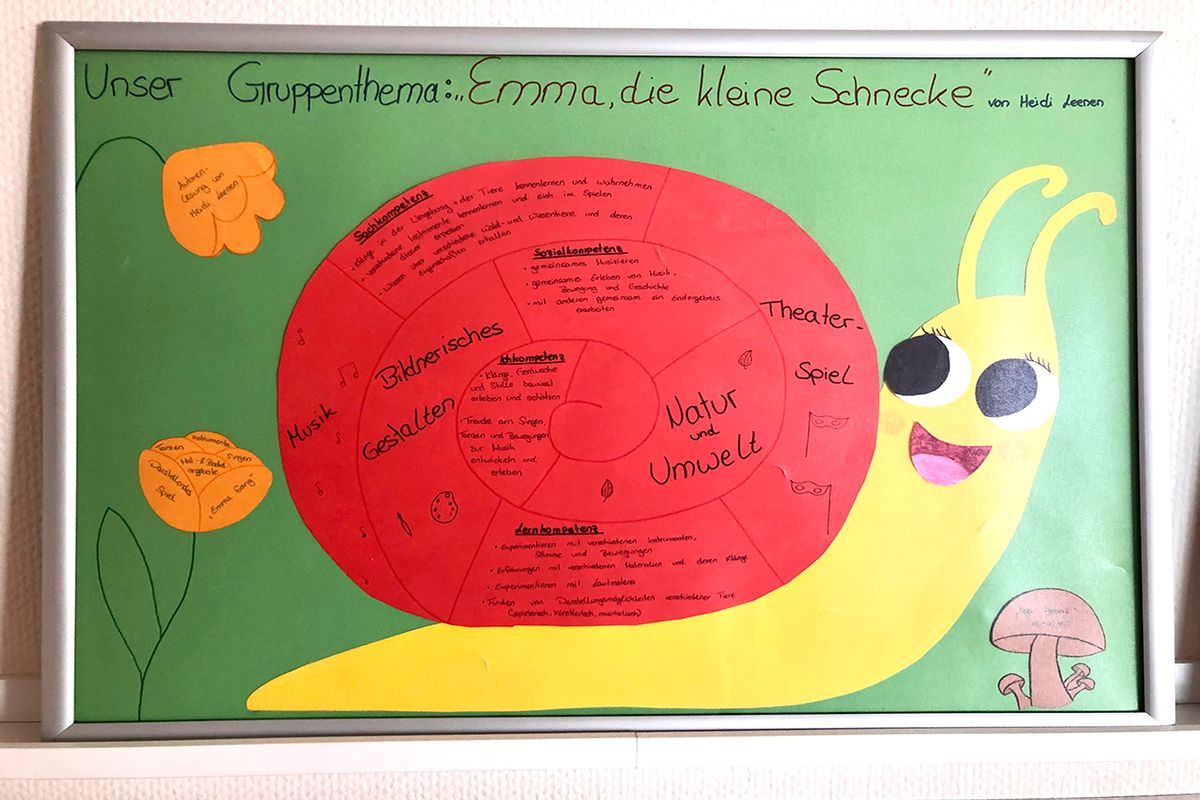 Unser Gruppenthema: „Emma, die kleine Schnecke" von Heidi Leenen
Autoren-
Lesung von
Heidi Leenen
Sachkompetenz
• Klänge in der Umgebung + der Tiere kennenlernen und wahrnehmen
• verschiedene Instrumente kennenlernen und sich im Spielen
dieser erproben
• Wissen über verschiedene Wald- und Wiesentiere und deren
Eigenschaften erhalten
Sozialkompetenz
• gemeinsames Musizieren
• gemeinsames Erleben von Musik,
Bewegung und Geschichte
• mit anderen gemeinsam ein Endergebnis
erarbeiten
Theater-
Spiel
Musik
Bildnerisches
Gestalten
Ichkompetenz
• Klänge, Geräusche
und Stille bewusst
erleben und schätzen
• Freude am Singen,
Tanzen und Bewegungen
zur Musik
entwickeln und
erleben
Natur
und
Umwelt
Lernkompetenz
• Experimentieren mit verschiedenen Instrumenten,
Stimme und Bewegungen
• Erfahrungen mit verschiedenen Materialien und deren Klänge
• Experimentieren mit Lautmalerei
• Finden von Darstellungsmöglichkeiten verschiedener Tiere
(spielerisch, künstlerisch, musikalisch)
Tanzen
Instrumente
Singen
Mal- & Bastel-
angebote
Darstellendes
Spiel
Emma Song